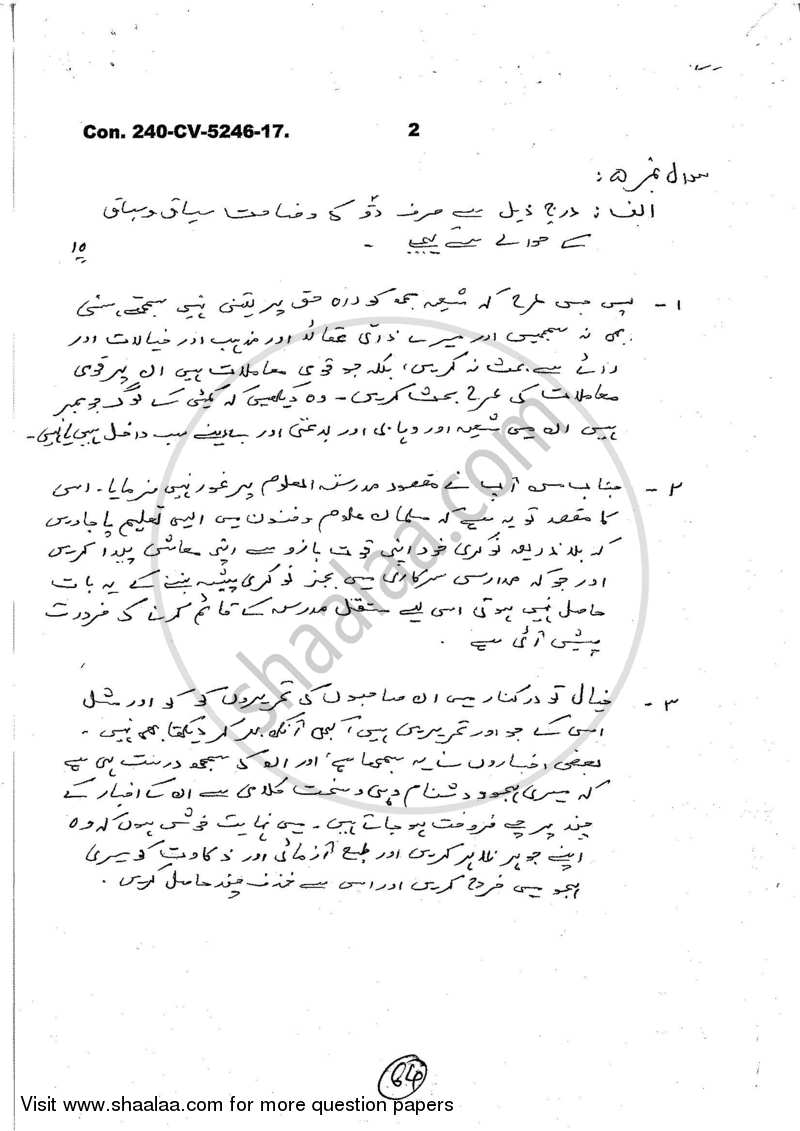 Con. 240-CV-5246-17. 2
سوال نمبر ۵ :
الف : درج ذیل سے صرف دو کی وضاحت سیاق و سباق
کے حوالے سے کیجیے - ۱۵
۱ - پس جس طرح کہ شیعہ مجھ کو راہ حق پر یقینی نہیں سمجھتے، سنی
بھی نہ سمجھیں اور میرے ذاتی عقائد اور مذہب اور خیالات اور
رائے سے بحث نہ کریں، بلکہ جو قومی معاملات ہیں ان پر قومی
معاملات کی طرح بحث کریں - وہ دیکھیں کہ کمیٹی کے لوگ جو ممبر
ہیں ان میں شیعہ اور وہابی اور بدعتی اور بے دینے سب داخل ہیں یا نہیں -
۲ - جناب من آپ نے مقصود مدرسۃ العلوم پر غور نہیں فرمایا - اس
کا مقصد تو یہ ہے کہ مسلمان علوم و فنون میں ایسی تعلیم پا جاویں
کہ بلا ذریعہ نوکری خود اپنی قوت بازو سے اپنی معاش پیدا کریں
اور جو کہ مدارس سرکاری میں بجز نوکری پیشہ بننے کے یہ بات
حاصل نہیں ہوتی اسی لیے مستقل مدرسہ کے قائم کرنے کی ضرورت
پیش آئی ہے .
۳ - خیال تو درکنار میں ان صاحبوں کی تحریروں کو اور مثل
اس کے جو اور تحریریں ہیں کبھی آنکھ بھر کر دیکھتا بھی نہیں -
بعض اخباروں نے یہ سمجھا ہے اور ان کی سمجھ درست بھی ہے
کہ میری ہجو و دشنام دہی و سخت کلامی سے ان کے اخبار کے
چند پرچے فروخت ہو جاتے ہیں - میں نہایت خوش ہوں کہ وہ
اپنے جوہر ظاہر کریں اور طبع آزمائی اور ذکاوت کو میری
ہجو میں خرچ کریں اور اس سے خذف چند حاصل کریں .
shaalaa.com
Visit www.shaalaa.com for more question papers